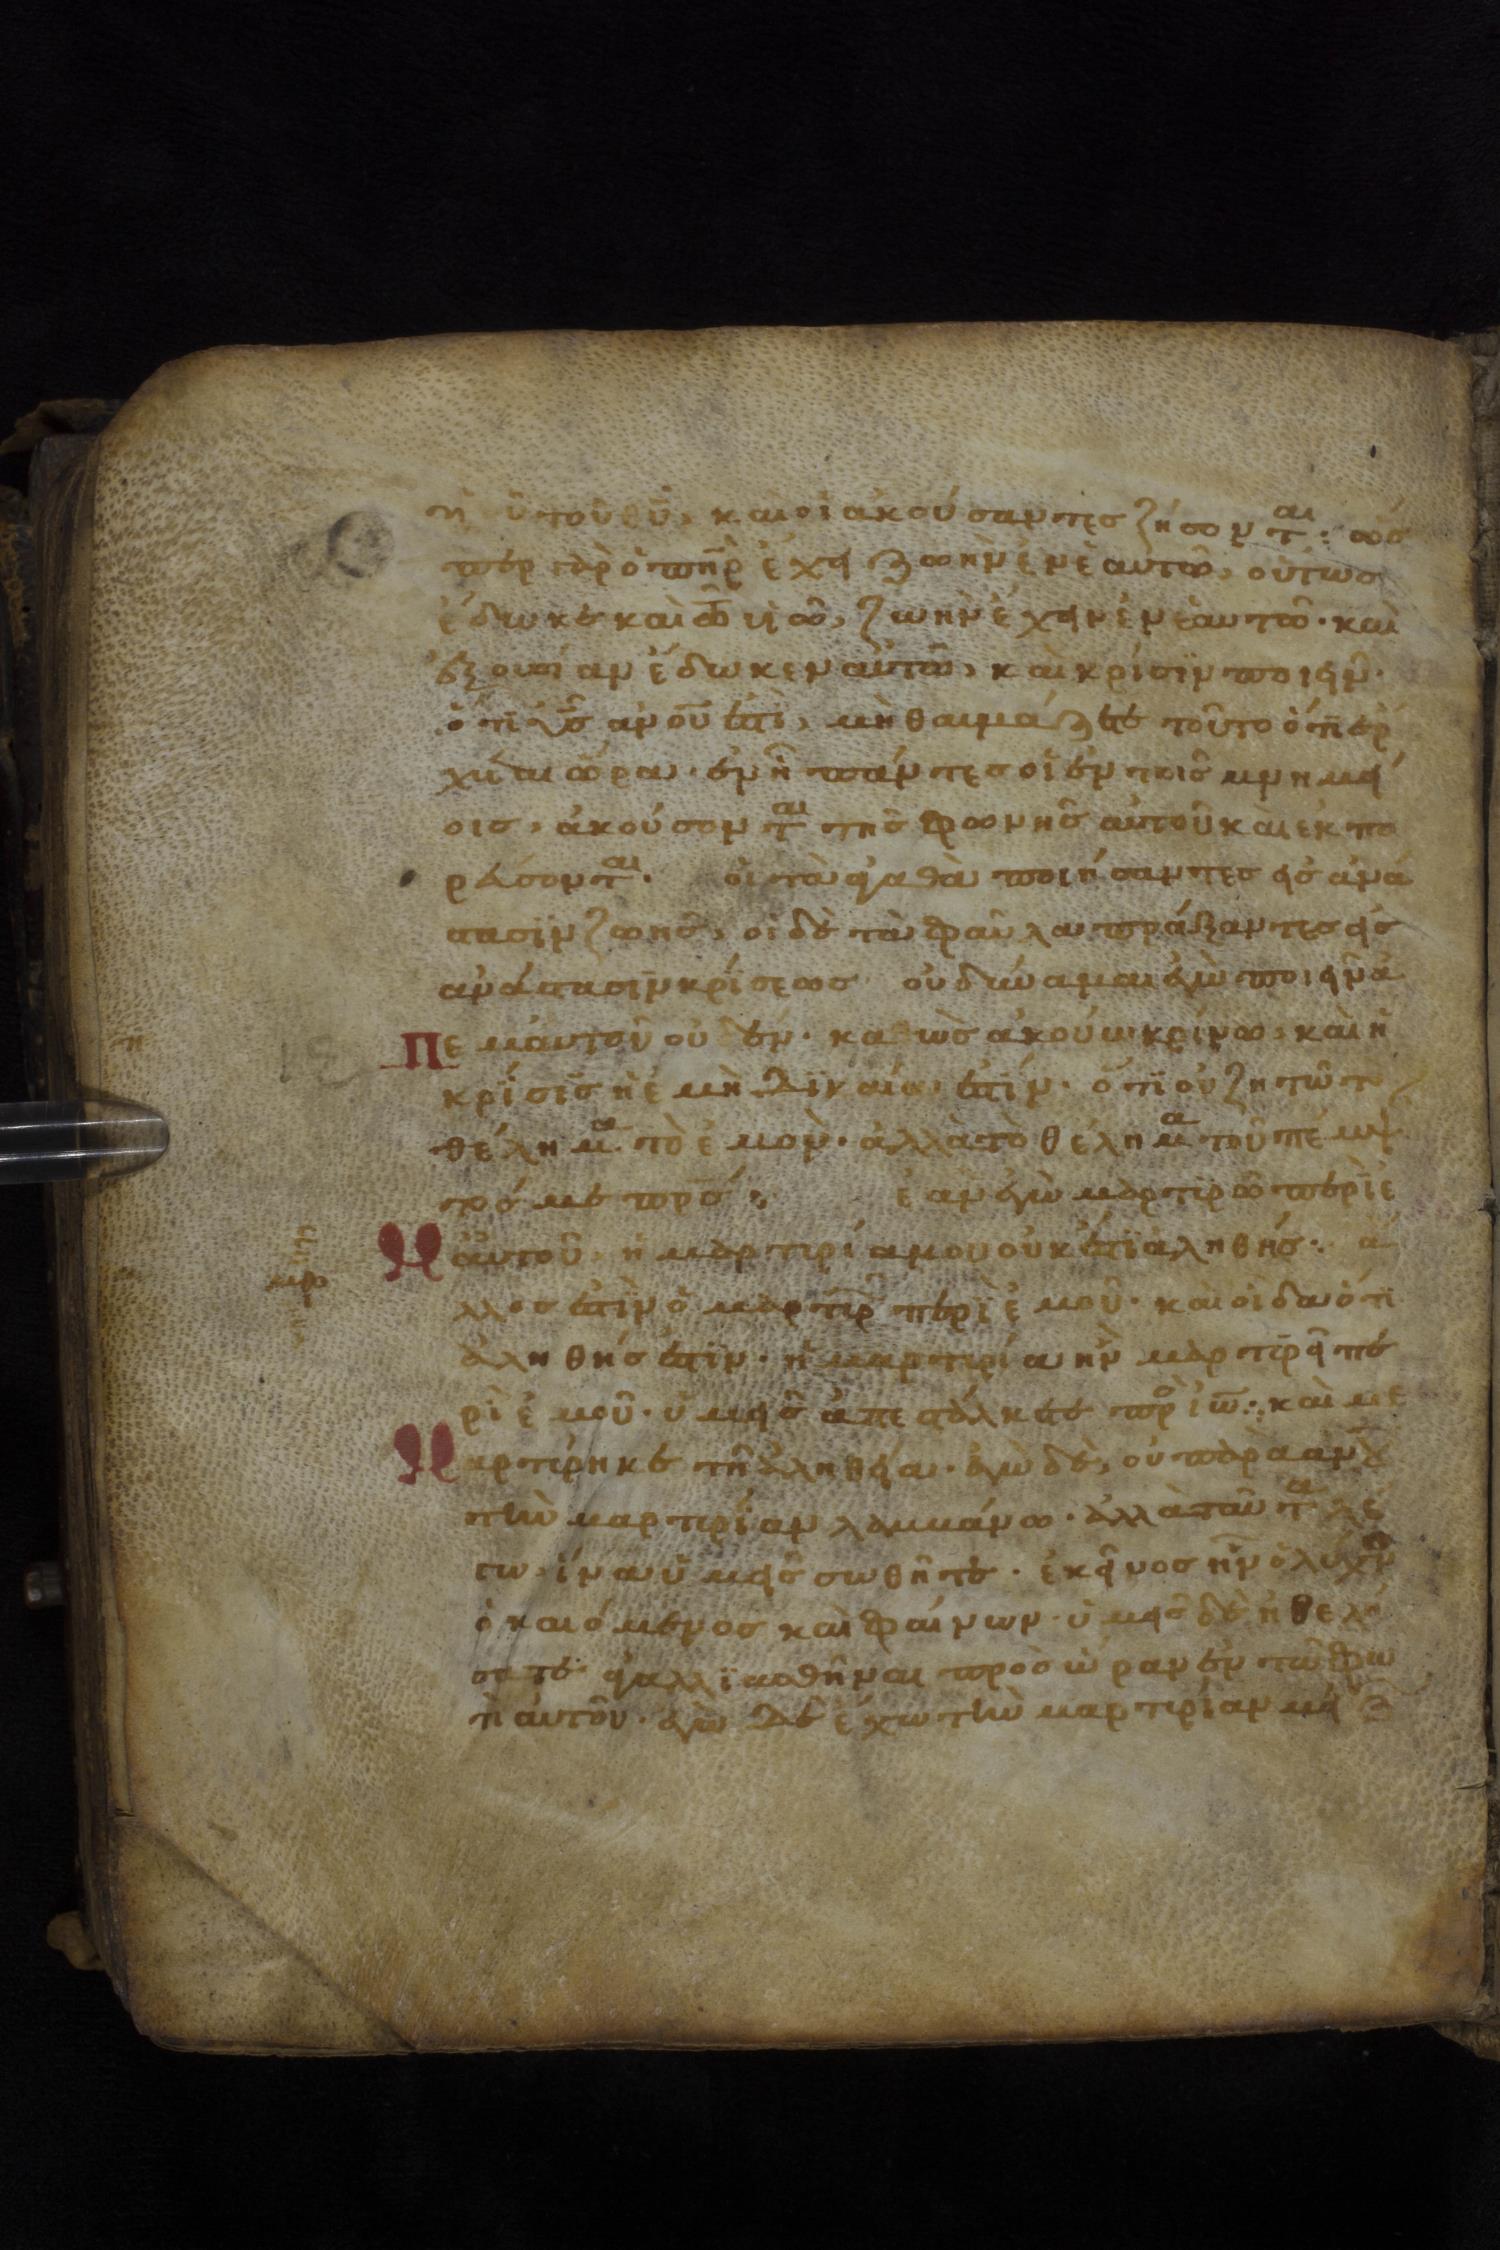 τῆ ὑ τοῦ θῦ, καὶ οἱ ἀκούσαντες ζήσονται: ὡς
περ γὰρ ὁ πηρ ἔχει ζωὴν ἐν ἑαυτῶ, οὕτως
ἔδωκε καὶ τῶ υἱῶ, ζωὴν ἔχειν ἐν ἑαυτῶ· καὶ
ἐξουσίαν ἔδωκεν αὐτῶ, καὶ κρίσϊν ποιεῖν·
ὅτϊ υς ανου ἐστὶ, μὴ θαυμάζετε τοῦτο ὅτϊ ἔρ
χεται ὥρα· ἐν ἧ πάντες οἱ ἐν τοῖς μνημεί
οις, ἀκούσονται τῆς φωνῆς αὐτοῦ καὶ ἐκπο
ρεύσονται· οἱ τὰ ἀγαθὰ ποιήσαντες εἰς ἀνά
στασϊν ζωῆς, οἱ δὲ τὰ φαῦλα πράξαντες εἰς
ἀνάστασϊν κρίσεως οὐ δύναμαι ἐγὼ ποιεῖν ἀ
π ἐμαυτοῦ οὐδέν· καθὼς ἀκούω κρίνω, καὶ ἡ
κρίσϊς ἡ ἐμὴ δϊκαία ἐστϊν· ὅτϊ οὐ ζητῶ τὸ
θέλημα τὸ ἐμὸν· ἀλλὰ τὸ θέλημα τοῦ πέμψ
τός με πρς: ἐὰν ἐγὼ μαρτιρῶ περὶ ἐ
Μαυτοῦ, ἡ μαρτιρία μου οὐκ ἔστϊ ἀληθής: ἄ
λλος ἐστϊν ὁ μαρτιρ περὶ ἐμοῦ· καὶ οἶδα ὅτϊ
ἀληθής ἐστϊν· ἡ μαρτιρία ἣν μαρτιρεῖ πε
ρὶ ἐμοῦ· ὑμεῖς ἀπεστάλκατε πρὸ ιω: καὶ με
Μαρτίρηκε τῆ ἀληθεία· ἐγὼ δὲ, οὐ παρὰ ανχ
τὴν μαρτιρίαν λαμμάνω· ἀλλὰ ταῦτα λέ
γω, ἵνα ὑμεῖς σωθῆτε· ἐκεῖνος ἦν ὁ λύχν
ὁ καιόμενος καὶ φαίνων· ὑμεῖς δὲ ἠθελή
σατε ἀγαλλϊασθῆναι πρὸς ὥραν ἐν τῶ φω
τὶ αὐτοῦ· ἐγὼ δὲ ἔχω τὴν μαρτιρίαν μεί